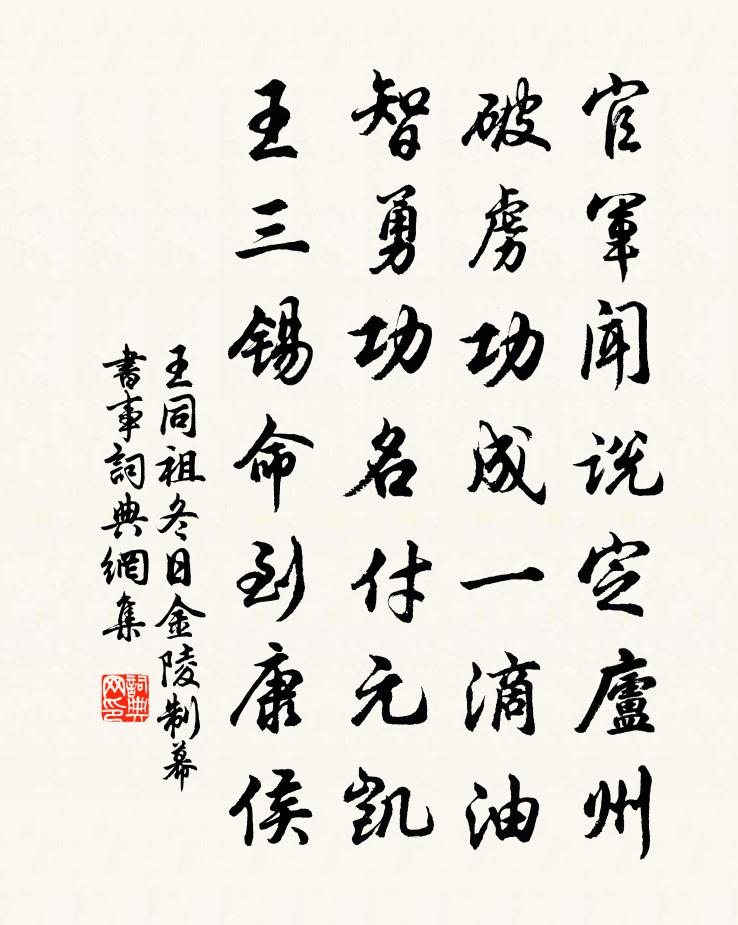 官軍聞說定廬州
破虜功成一滴油
智勇功名付元凱
王三錫命到康侯
王同祖冬日金陵制幕
書事詞典網集
詞典
网印